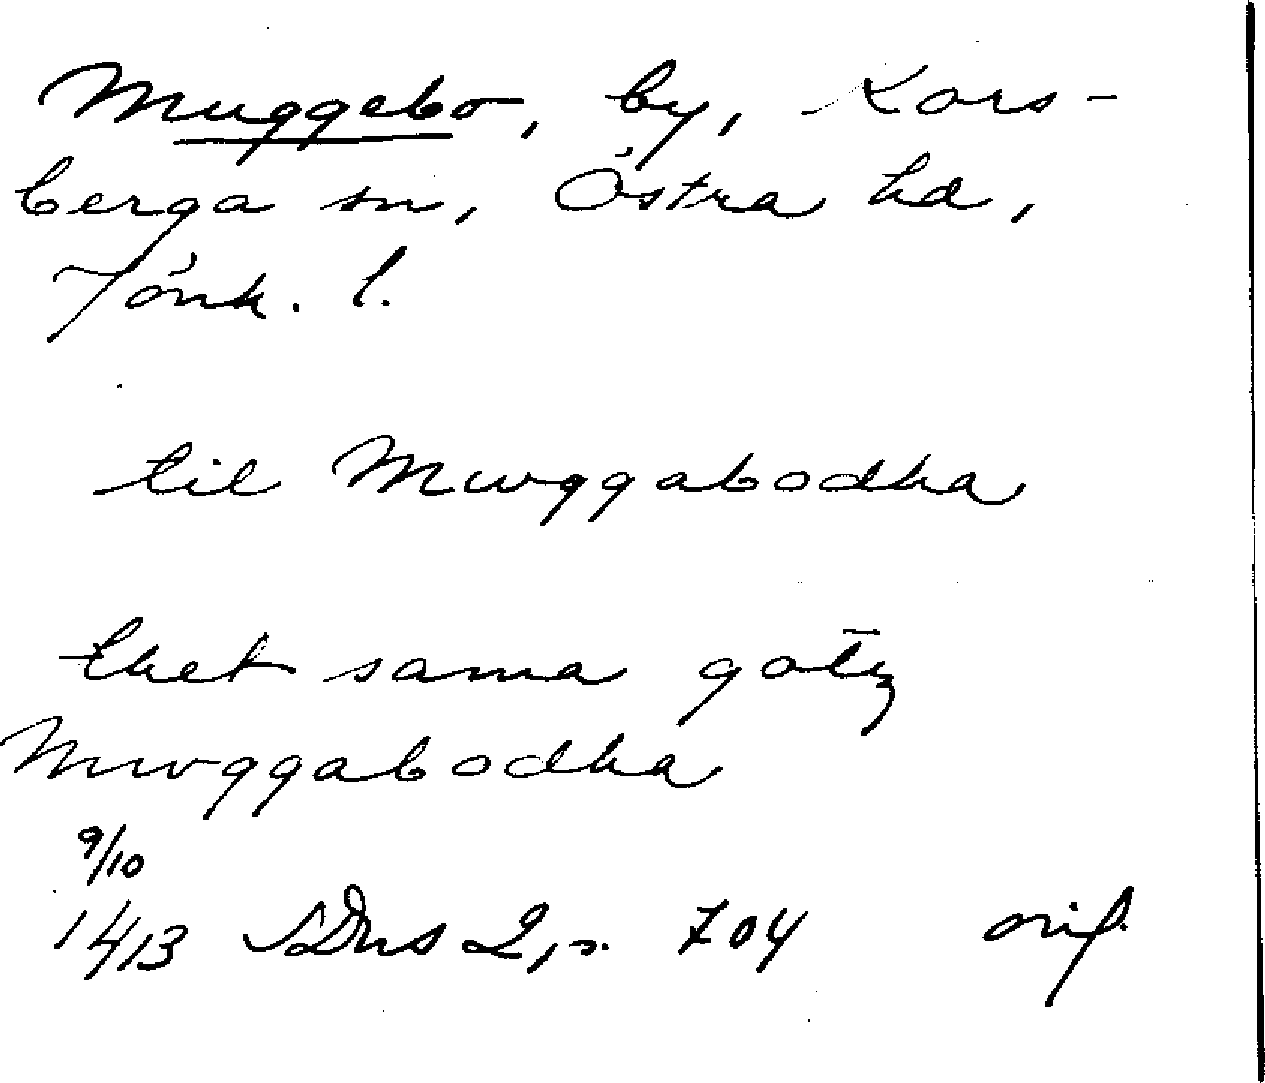 Muggebo, by, Kors-
berga sn, Östra hd,
Jönk. l.
til Mwggabodha
thet sama gotz
Mwggabodha
9/10
1413 SDns 2, s. 704 orig.